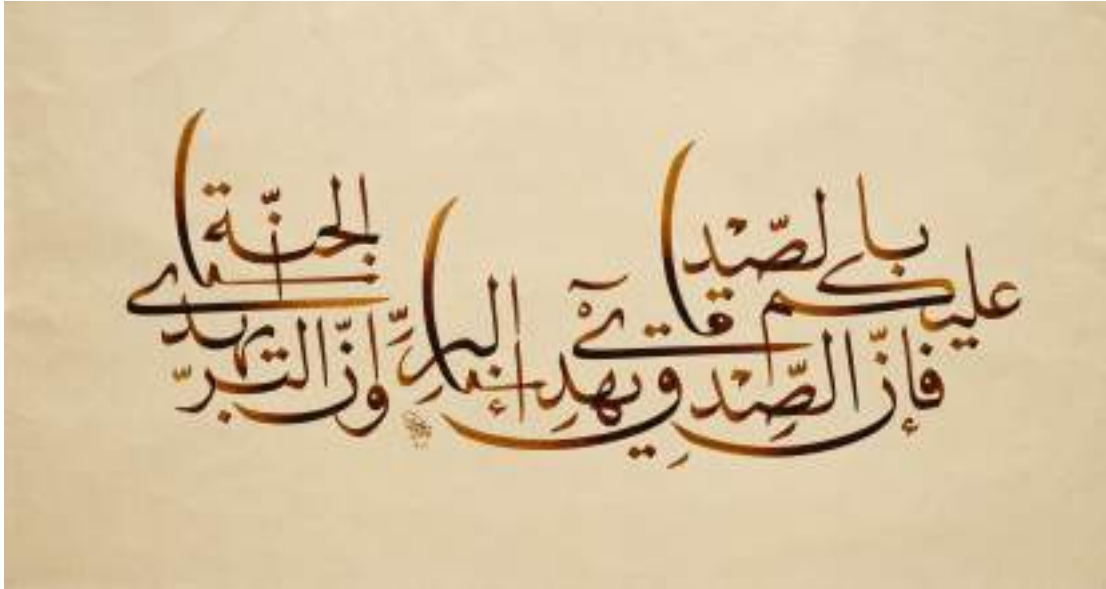 عليكم بالصّدْق
فإنّ الصِّدْق يهدِي إلى البِرِّ
وإنّ البرّ يهدي إلى الجنّة